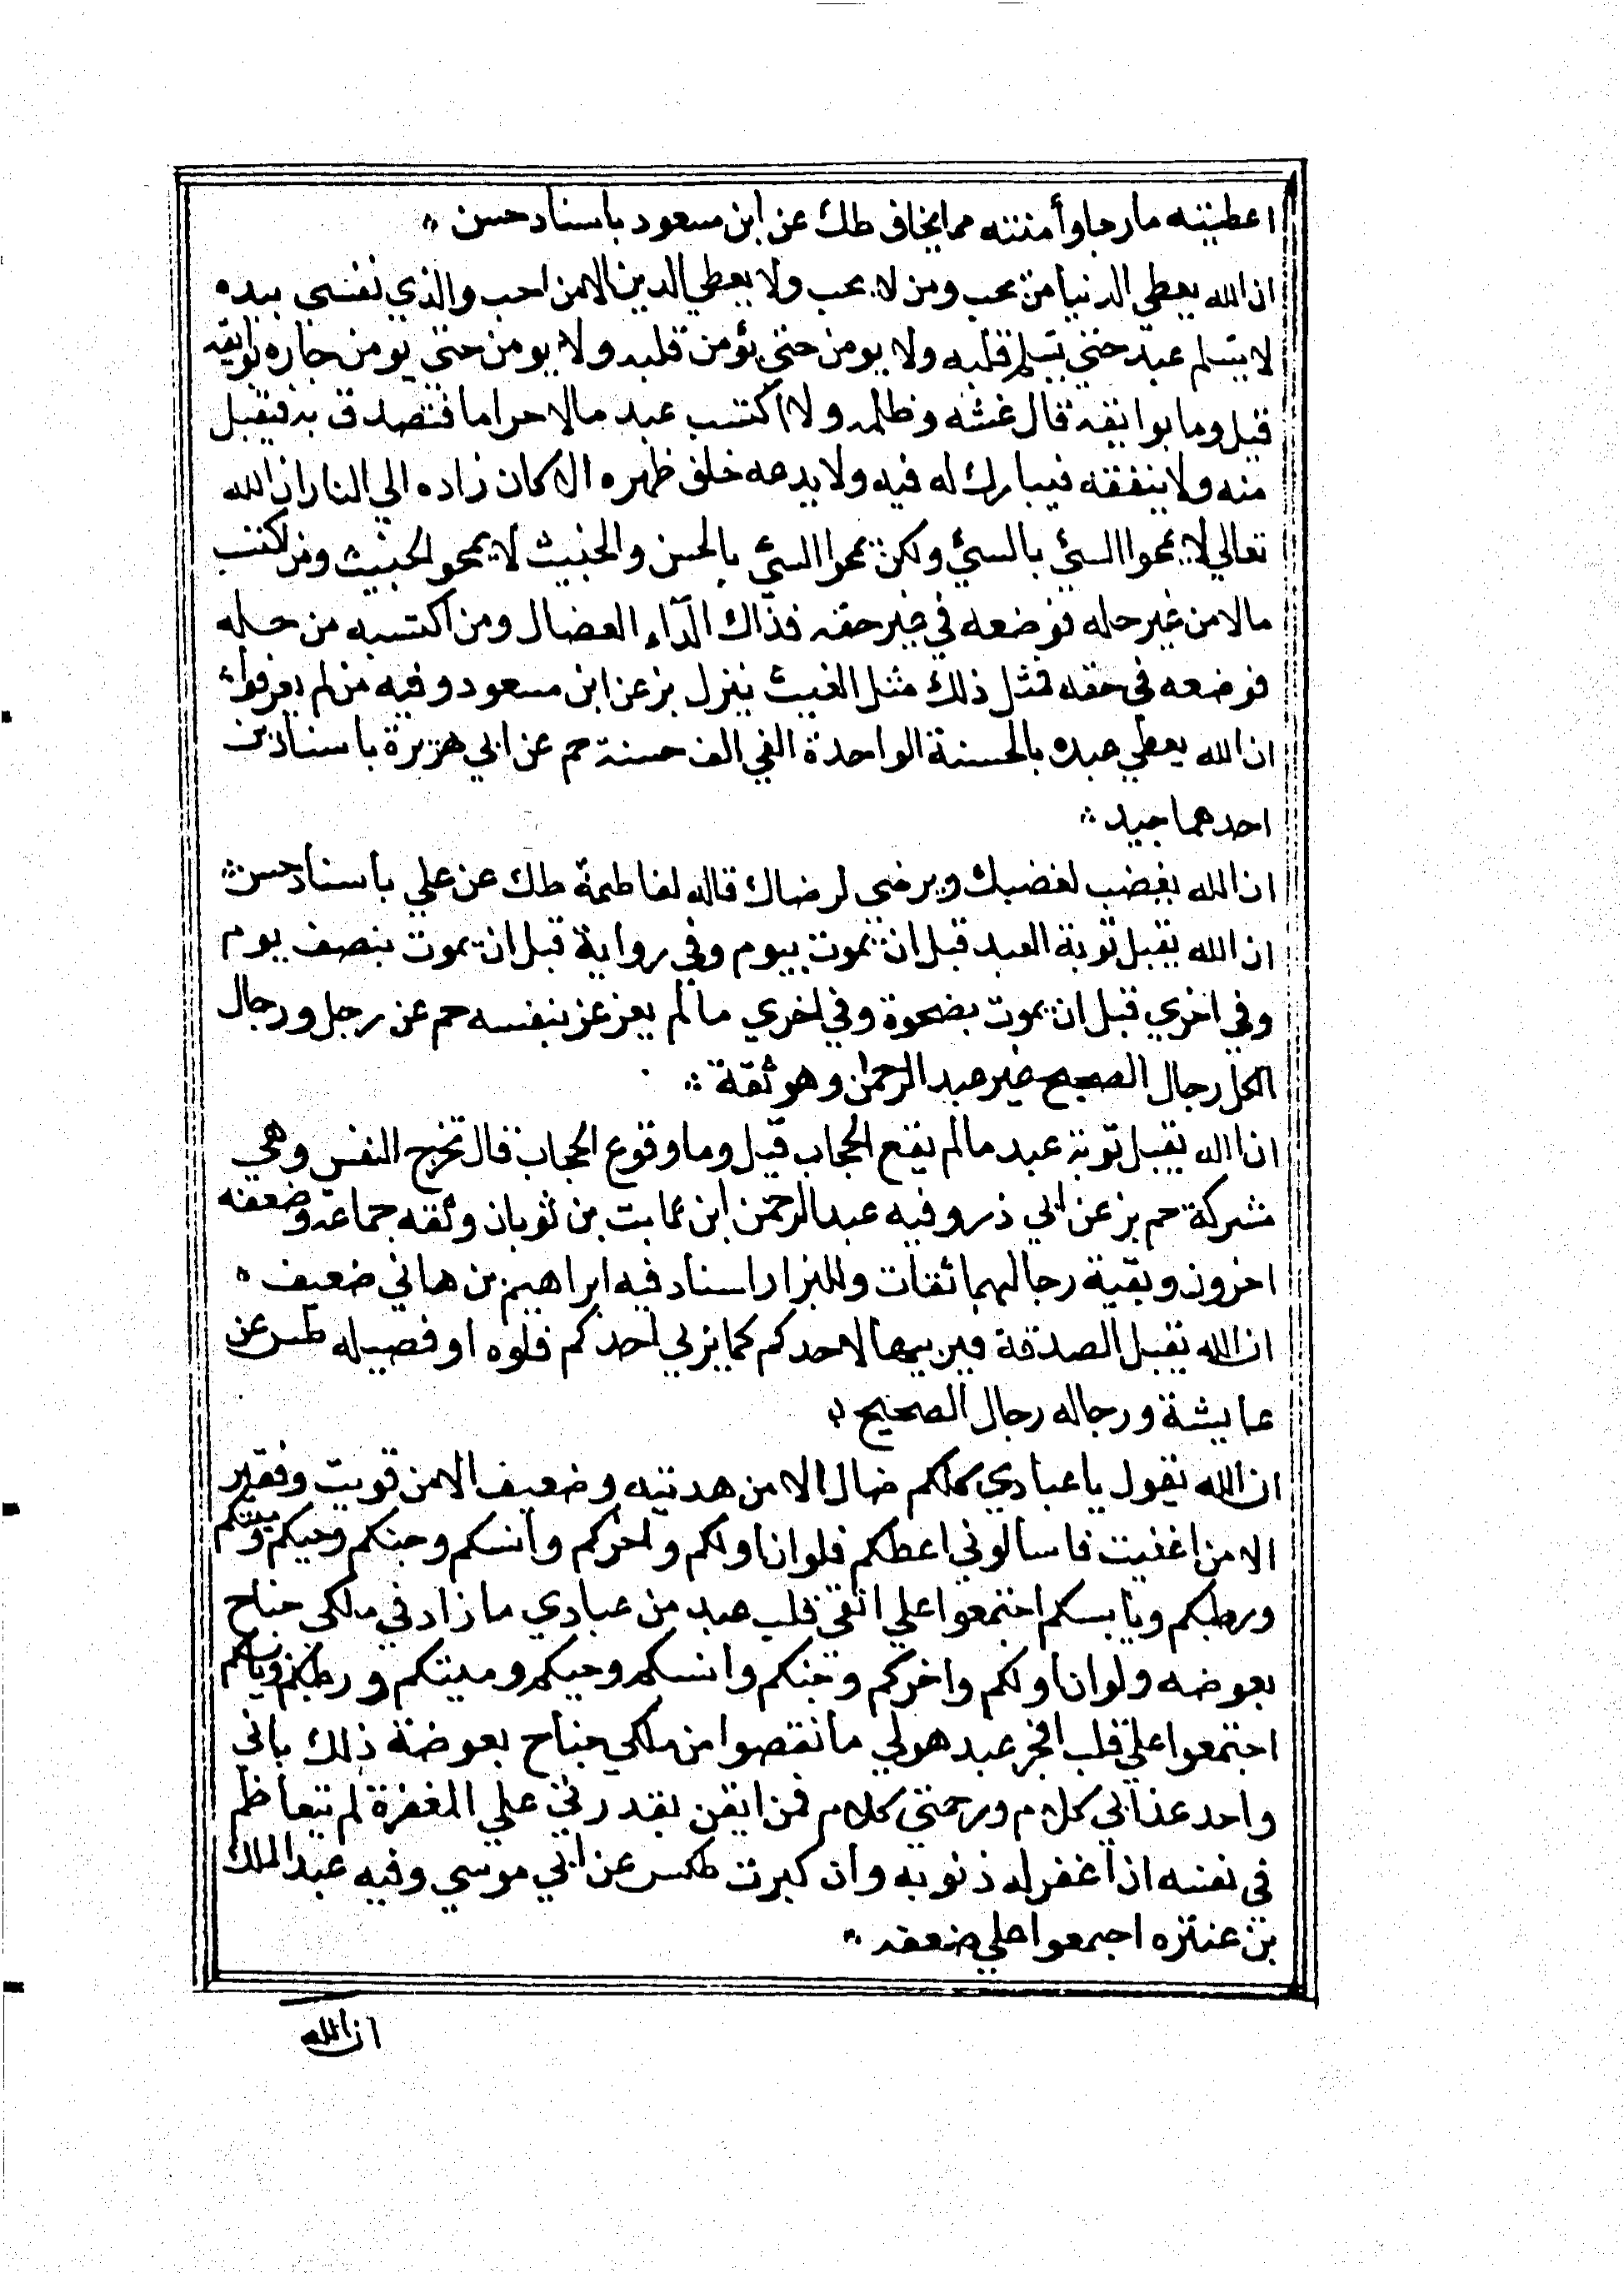 اعطيته ما رجا وأمنته مما يخاف طك عن ابن مسعود باسناد حسن
ان الله يعطي الدنيا من يحب ومن لا يحب ولا يعطي الدين الا من احب والذي نفسى بيده
لا يسلم عبد حتي يسلم قلبه ولا يومن حتي يؤمن قلبه ولا يومن حتي يومن جاره بوايقه
قيل وما بوايقه قال غشه وظلمه ولا اكتسب عبد مالا حراما فتصدق به فيقبل
منه ولا ينفقه فيبارك له فيه ولا يدعه خلف ظهره الا كان زاده الي النار ان الله
تعالي لا يمحوا السئ بالسئ ولكن يمحوا السئ بالحسن والخبيث لا يمحو الخبيث ومن اكتسب
مالا من غير حله فوضعه في غير حقه فذاك الدآء العضال ومن اكتسبه من حله
فوضعه فى حقه فمثل ذلك مثل الغيث ينزل بز عن ابن مسعود وفيه من لم يعرفوا
ان الله يعطي عبده بالحسنة الواحدة الفي الف حسنة حم عن ابي هريرة باسنادين
احدهما جيد
ان الله يغضب لغضبك ويرضى لرضاك قاله لفاطمة طك عن علي باسناد حسن
ان الله يقبل توبة العبد قبل ان يموت بيوم وفي رواية قبل ان يموت بنصف يوم
وفي اخري قبل ان يموت بضحوة وفي اخري ما لم يعرعر بنفسه حم عن رجل ورجال
الكل رجال الصحيح غير عبد الرحمان وهو ثقة
ان الله يقبل توبة عبد ما لم يقع الحجاب قيل وما وقوع الحجاب قال تخرج النفس وهي
مشركة حم بز عن ابي ذر وفيه عبد الرحمن ابن ثابت بن ثوبان وثقه جماعه وضعفه
اخرون وبقية رجالهما ثقات وللبزار اسناد فيه ابراهيم بن هاني ضعيف
ان الله يقبل الصدقة فيربيها لاحدكم كما يربي احدكم فلوه او فصيله طس عن
عايشة ورجاله رجال الصحيح
ان الله يقول يا عبادي كلكم ضال الا من هديته وضعيف الا من قويت وفقير
الا من اغنيت فاسالوني اعطكم فلو ان اولكم واخركم وانسكم وجنكم وحيكم وميتكم
ورطبكم ويابسكم اجتمعوا علي اتقى قلب عبد من عبادي ما زاد في ملكى جناح
بعوضه ولو ان اولكم واخركم وجنكم وانسكم وحيكم وميتكم ورطبكم ويابسكم
اجتمعوا علي قلب افجر عبد هو لي ما نقصوا من ملكي جناح بعوضة ذلك بانى
واحد عذابي كلام ورحمتي كلام فمن ايقن بقدرتي علي المغفرة لم يتعاظم
في نفسه ان اغفر له ذنوبه وان كبرت طكس عن ابي موسي وفيه عبد الملك
بن عنتره اجمعوا علي ضعفه
ان الله